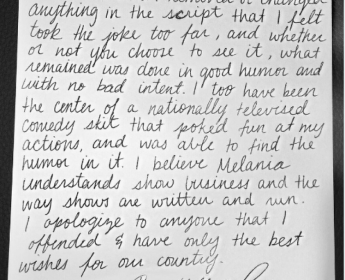 anything in the script that I felt
took the joke too far, and whether
or not you choose to see it, what
remained was done in good humor and
with no bad intent. I too have been
the center of a nationally televised
comedy skit that poked fun at my
actions, and was able to find the
humor in it. I believe Melania
understands show business and the
way shows are written and run.
I apologize to anyone that I
offended & have only the best
wishes for our country.